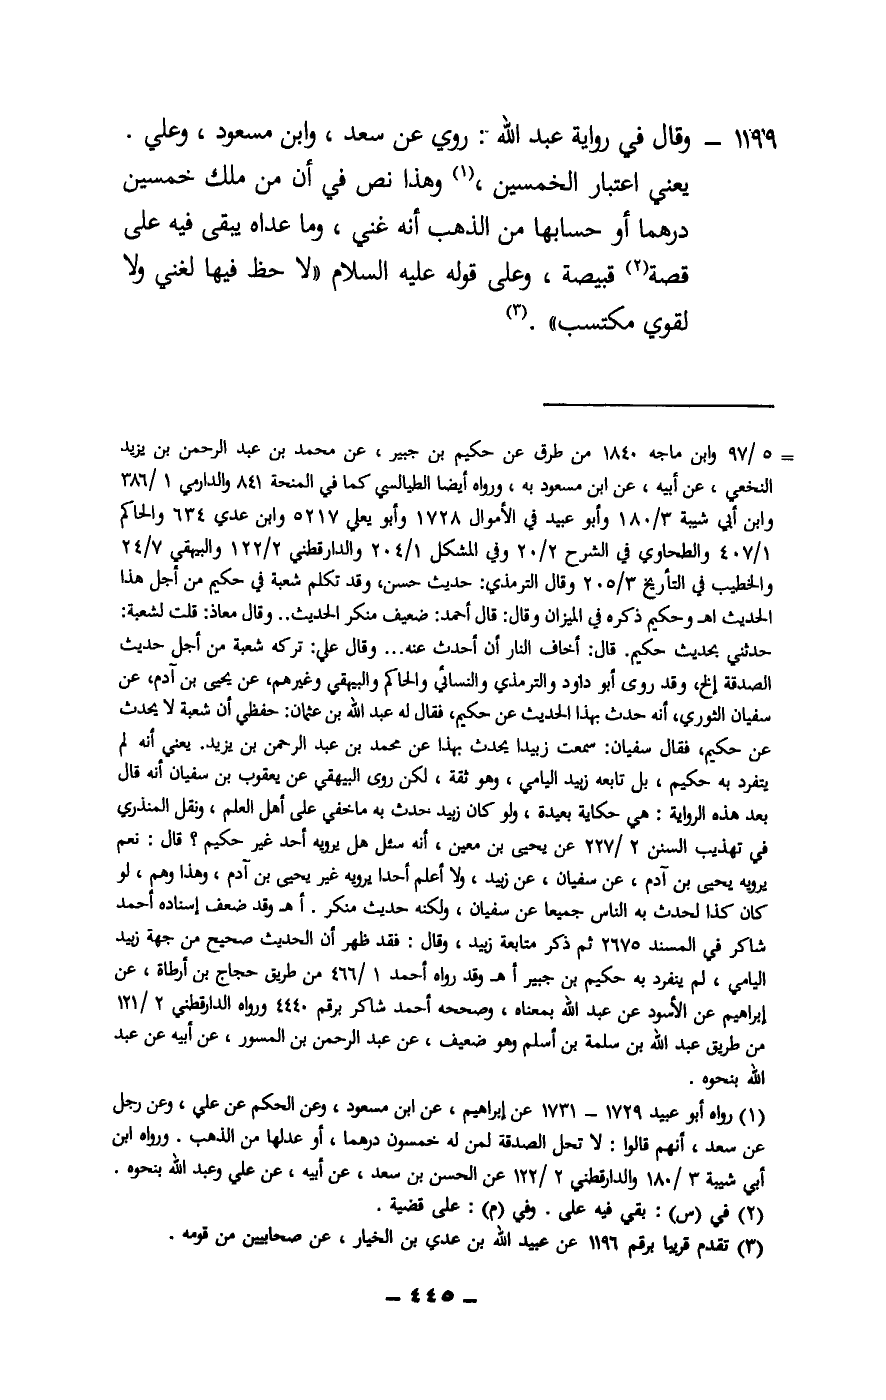 ١١٩٩ – وقال في رواية عبد الله : روي عن سعد ، وابن مسعود ، وعلي .
يعني اعتبار الخمسين ،(١) وهذا نص في أن من ملك خمسين
درهما أو حسابها من الذهب أنه غني ، وما عداه يبقى فيه على
قصة(٢) قبيصة ، وعلى قوله عليه السلام «لا حظ فيها لغني ولا
لقوي مكتسب» .(٣)
= ٩٧/٥ وابن ماجه ١٨٤٠ من طرق عن حكيم بن جبير ، عن محمد بن عبد الرحمن بن يزيد
النخعي ، عن أبيه ، عن ابن مسعود به ، ورواه أيضا الطيالسي كما في المنحة ٨٤١ والدارمي ٣٨٦/١
وابن أبي شيبة ١٨٠/٣ وأبو عبيد في الأموال ١٧٢٨ وأبو يعلي ٥٢١٧ وابن عدي ٦٣٤ والحاكم
٤٠٧/١ والطحاوي في الشرح ٢٠/٢ وفي المشكل ٢٠٤/١ والدارقطني ١٢٢/٢ والبيهقي ٢٤/٧
والخطيب في التأريخ ٢٠٥/٣ وقال الترمذي: حديث حسن، وقد تكلم شعبة في حكيم من أجل هذا
الحديث اهـ وحكيم ذكره في الميزان وقال: قال أحمد: ضعيف منكر الحديث.. وقال معاذ: قلت لشعبة:
حدثني بحديث حكيم. قال: أخاف النار أن أحدث عنه... وقال علي: تركه شعبة من أجل حديث
الصدقة إلخ، وقد روى أبو داود والترمذي والنسائي والحاكم والبيهقي وغيرهم، عن يحيى بن آدم، عن
سفيان الثوري، أنه حدث بهذا الحديث عن حكيم، فقال له عبد الله بن عثمان: حفظي أن شعبة لا يحدث
عن حكيم، فقال سفيان: سمعت زبيدا يحدث بهذا عن محمد بن عبد الرحمن بن يزيد. يعني أنه لم
يتفرد به حكيم ، بل تابعه زبيد اليامي ، وهو ثقة ، لكن روى البيهقي عن يعقوب بن سفيان أنه قال
بعد هذه الرواية : هي حكاية بعيدة ، ولو كان زبيد حدث به ماخفي على أهل العلم ، ونقل المنذري
في تهذيب السنن ٢٢٧/٢ عن يحيى بن معين ، أنه سئل هل يرويه أحد غير حكيم ؟ قال : نعم
يرويه يحيى بن آدم ، عن سفيان ، عن زبيد ، ولا أعلم أحدا يرويه غير يحيى بن آدم ، وهذا وهم ، لو
كان كذا لحدث به الناس جميعا عن سفيان ، ولكنه حديث منكر . أ هـ وقد ضعف إسناده أحمد
شاكر في المسند ٢٦٧٥ ثم ذكر متابعة زبيد ، وقال : فقد ظهر أن الحديث صحيح من جهة زبيد
اليامي ، لم ينفرد به حكيم بن جبير أ هـ وقد رواه أحمد ٤٦٦/١ من طريق حجاج بن أرطاة ، عن
إبراهيم عن الأسود عن عبد الله بمعناه ، وصححه أحمد شاكر برقم ٤٤٤٠ ورواه الدارقطني ١٢١/٢
من طريق عبد الله بن سلمة بن أسلم وهو ضعيف ، عن عبد الرحمن بن المسور ، عن أبيه عن عبد
الله بنحوه .
(١) رواه أبو عبيد ١٧٢٩ – ١٧٣١ عن إبراهيم ، عن ابن مسعود ، وعن الحكم عن علي ، وعن رجل
عن سعد ، أنهم قالوا : لا تحل الصدقة لمن له خمسون درهما ، أو عدلها من الذهب . ورواه ابن
أبي شيبة ١٨٠/٣ والدارقطني ١٢٢/٢ عن الحسن بن سعد ، عن أبيه ، عن علي وعبد الله بنحوه .
(٢) في (س) : بقي فيه على . وفي (م) : على قضية .
(٣) تقدم قريبا برقم ١١٩٦ عن عبيد الله بن عدي بن الخيار ، عن صحابيين من قومه .
– ٤٤٥ –